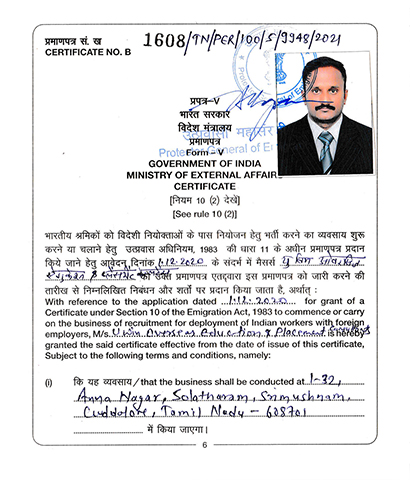 प्रमाणपत्र सं. ख
CERTIFICATE NO. B 1608/TN/PER/100/5/9948/2021
प्रपत्र-V
भारत सरकार
विदेश मंत्रालय
उत्प्रवासी महासंरक्षक
प्रमाणपत्र
Protector General of
Form - V
GOVERNMENT OF INDIA
MINISTRY OF EXTERNAL AFFAIRS
CERTIFICATE
[नियम 10 (2) देखें]
[See rule 10 (2)]
भारतीय श्रमिकों को विदेशी नियोक्ताओं के पास नियोजन हेतु भर्ती करने का व्यवसाय शुरू
करने या चलाने हेतु उत्प्रवास अधिनियम, 1983 की धारा 11 के अधीन प्रमाणपत्र प्रदान
किये जाने हेतु आवेदन दिनांक 1.12.2020 के संदर्भ में मैसर्स
को उक्त प्रमाणपत्र एतद्द्वारा इस प्रमाणपत्र को जारी करने की
तारीख से निम्नलिखित निबंधन और शर्तों पर प्रदान किया जाता है, अर्थात् :
With reference to the application dated 1.12.2020 for grant of a
Certificate under Section 10 of the Emigration Act, 1983 to commence or carry
on the business of recruitment for deployment of Indian workers with foreign
employers, M/s. Overseas Education & Placement is hereby
granted the said certificate effective from the date of issue of this certificate,
Subject to the following terms and conditions, namely:
(i) कि यह व्यवसाय / that the business shall be conducted at 1-32,
Anna Nagar, Solatharam, Srimushnam,
Cuddalore, Tamil Nadu - 608701
में किया जाएगा।
6